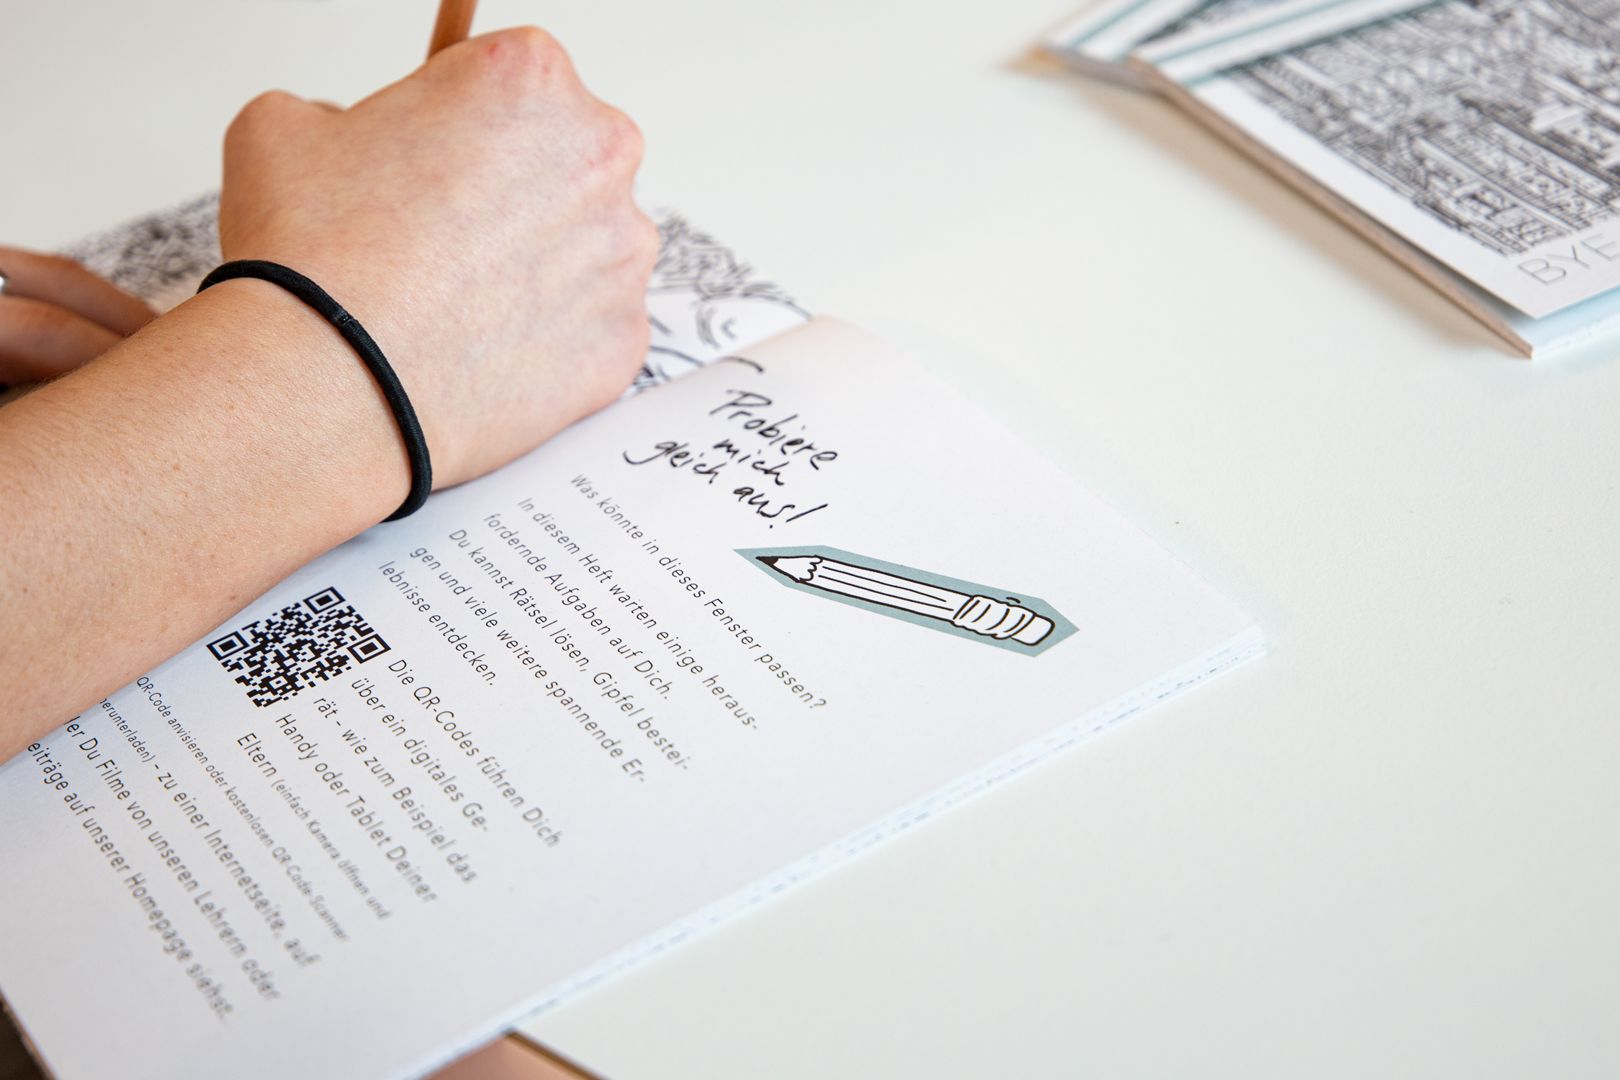 Probiere
mich
gleich aus!
Was könnte in dieses Fenster passen?
In diesem Heft warten einige heraus-
fordernde Aufgaben auf Dich.
Du kannst Rätsel lösen, Gipfel bestei-
gen und viele weitere spannende Er-
lebnisse entdecken.
Die QR-Codes führen Dich
über ein digitales Ge-
rät – wie zum Beispiel das
Handy oder Tablet Deiner
Eltern (einfach Kamera öffnen und
QR-Code anvisieren oder kostenlosen QR-Code-Scanner
herunterladen) – zu einer Internetseite, auf
der Du Filme von unseren Lehrern oder
Beiträge auf unserer Homepage siehst.
BYE